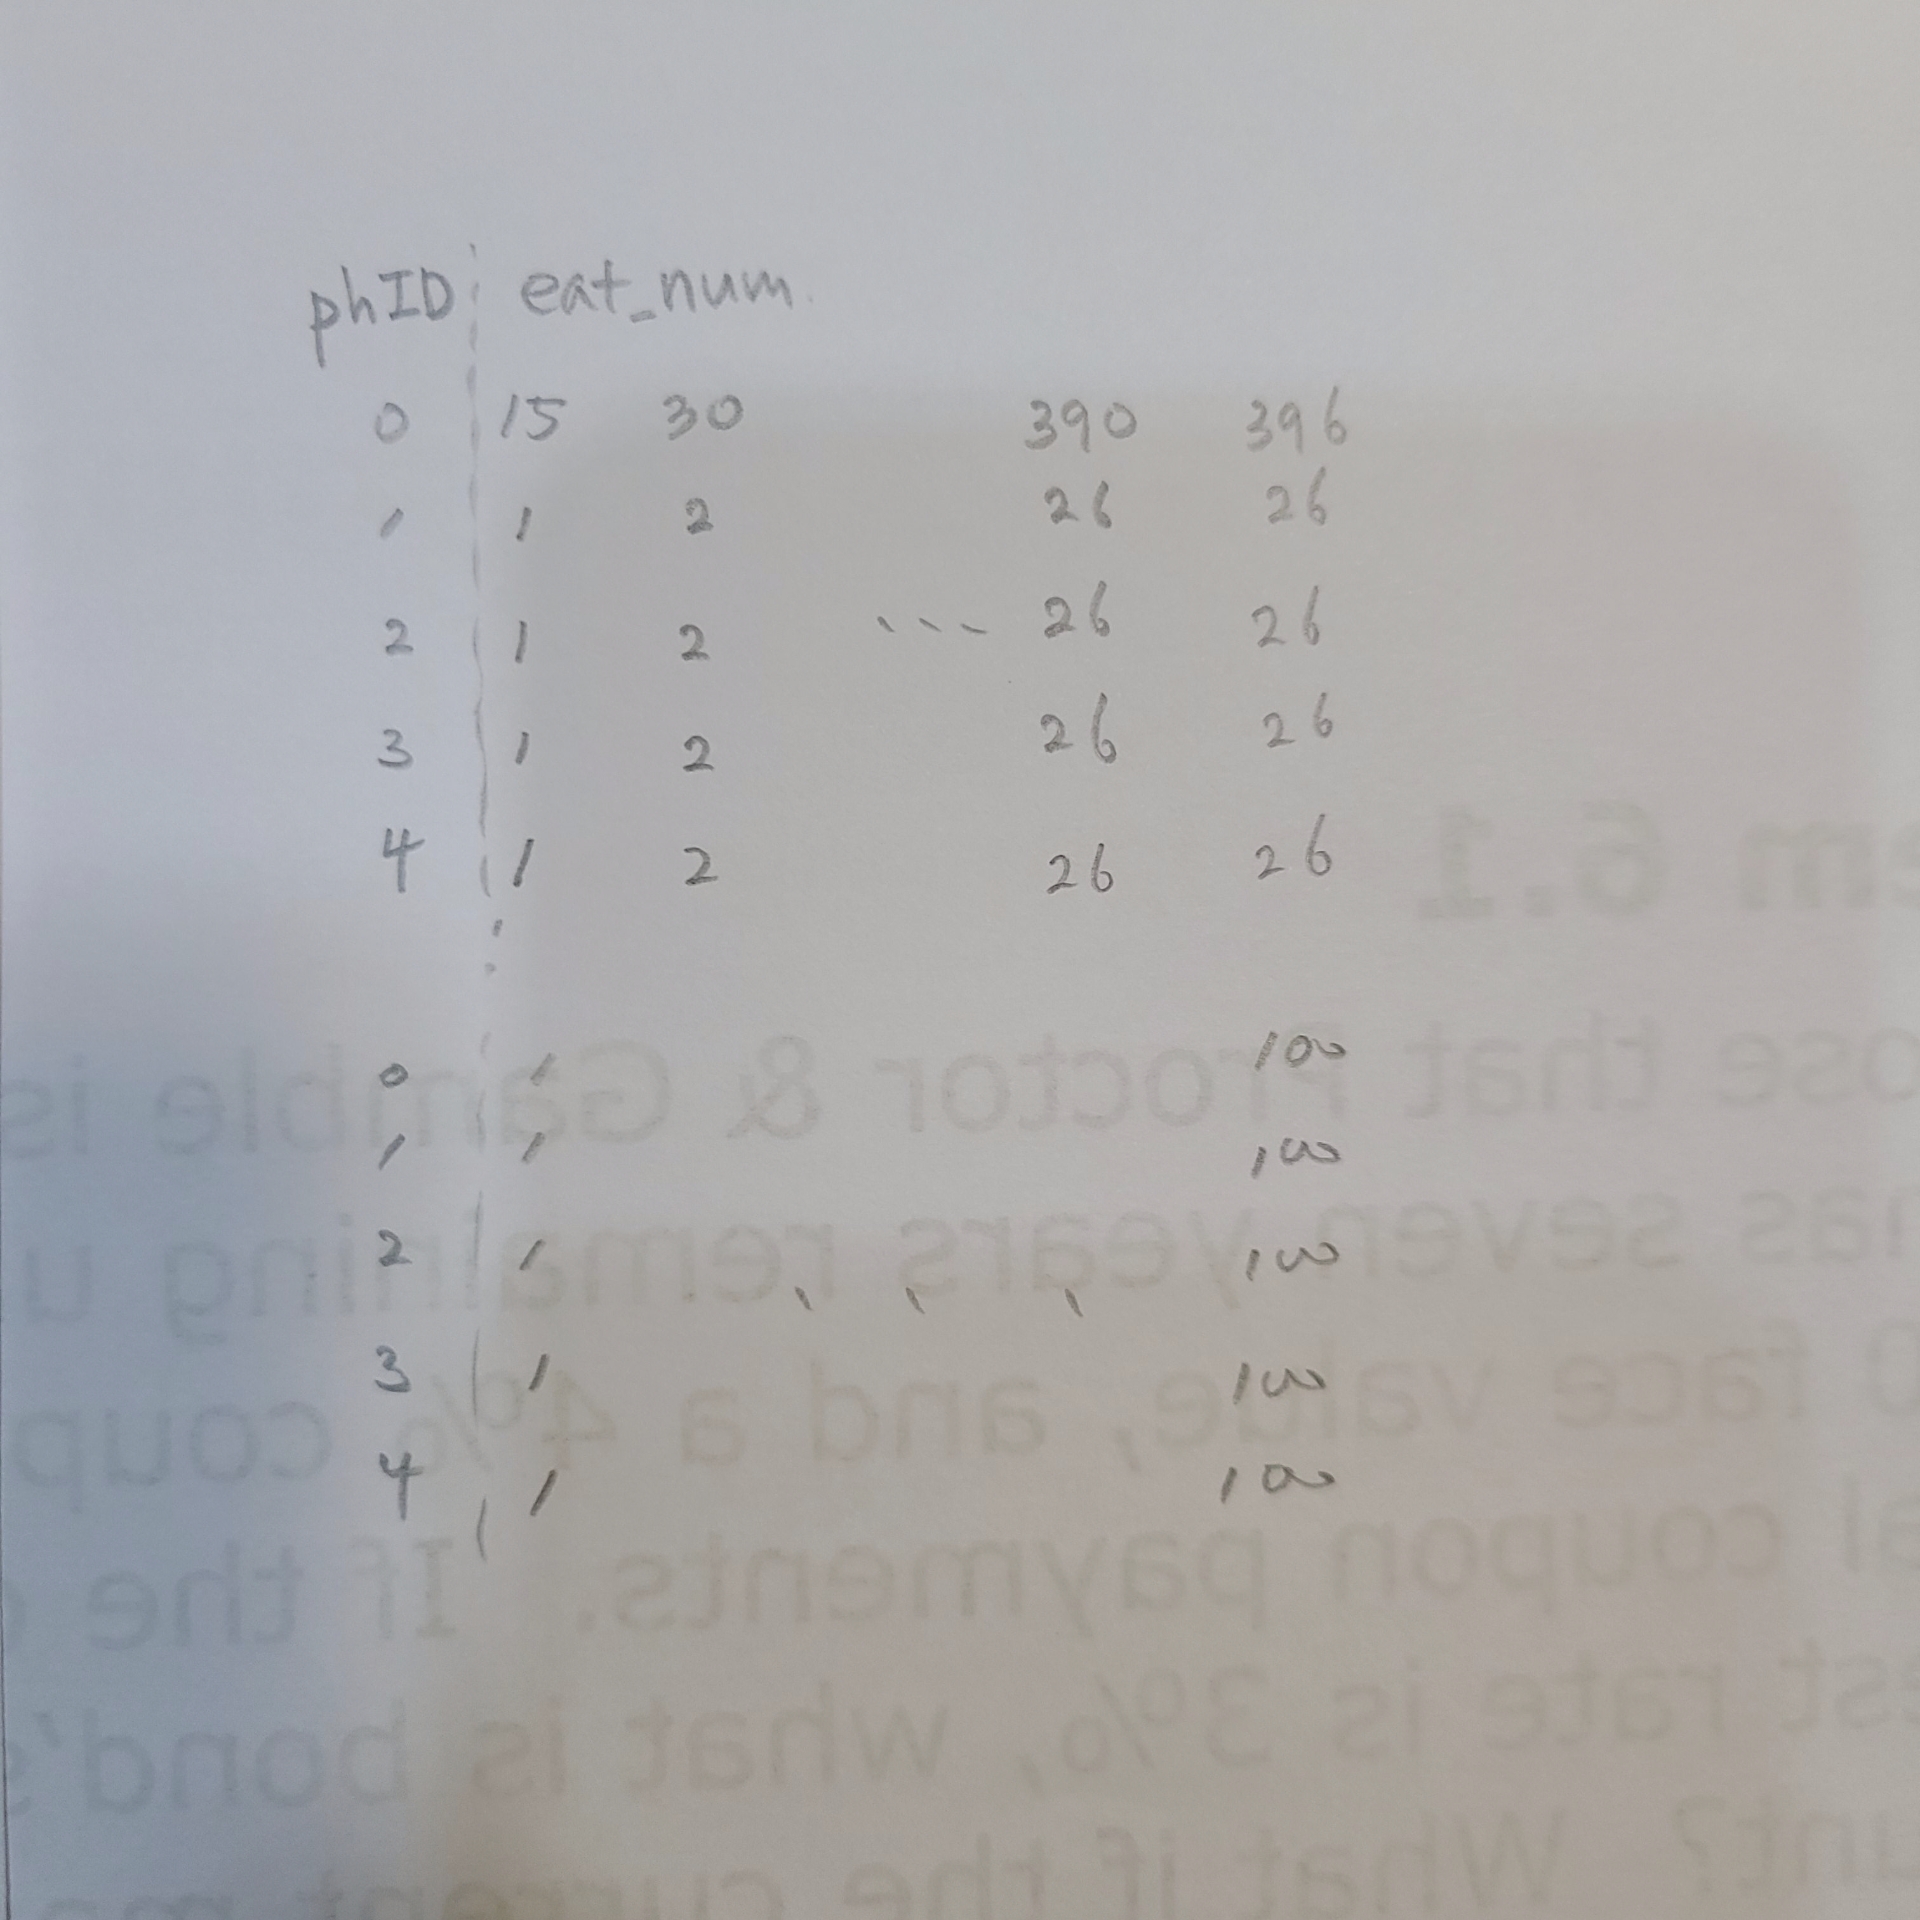 phID eat_num.
0 15 30 390 396
1 1 2 26 26
2 1 2 ... 26 26
3 1 2 26 26
4 1 2 26 26
:
0 1 100
1 1 100
2 1 . . . 100
3 1 100
4 1 100
em 6.1
ose that Proctor & Gamble is
has seven years remaining u
0 face value, and a 4% coup
al coupon payments. If the
est rate is 3%, what is bond's
unt? What if the current